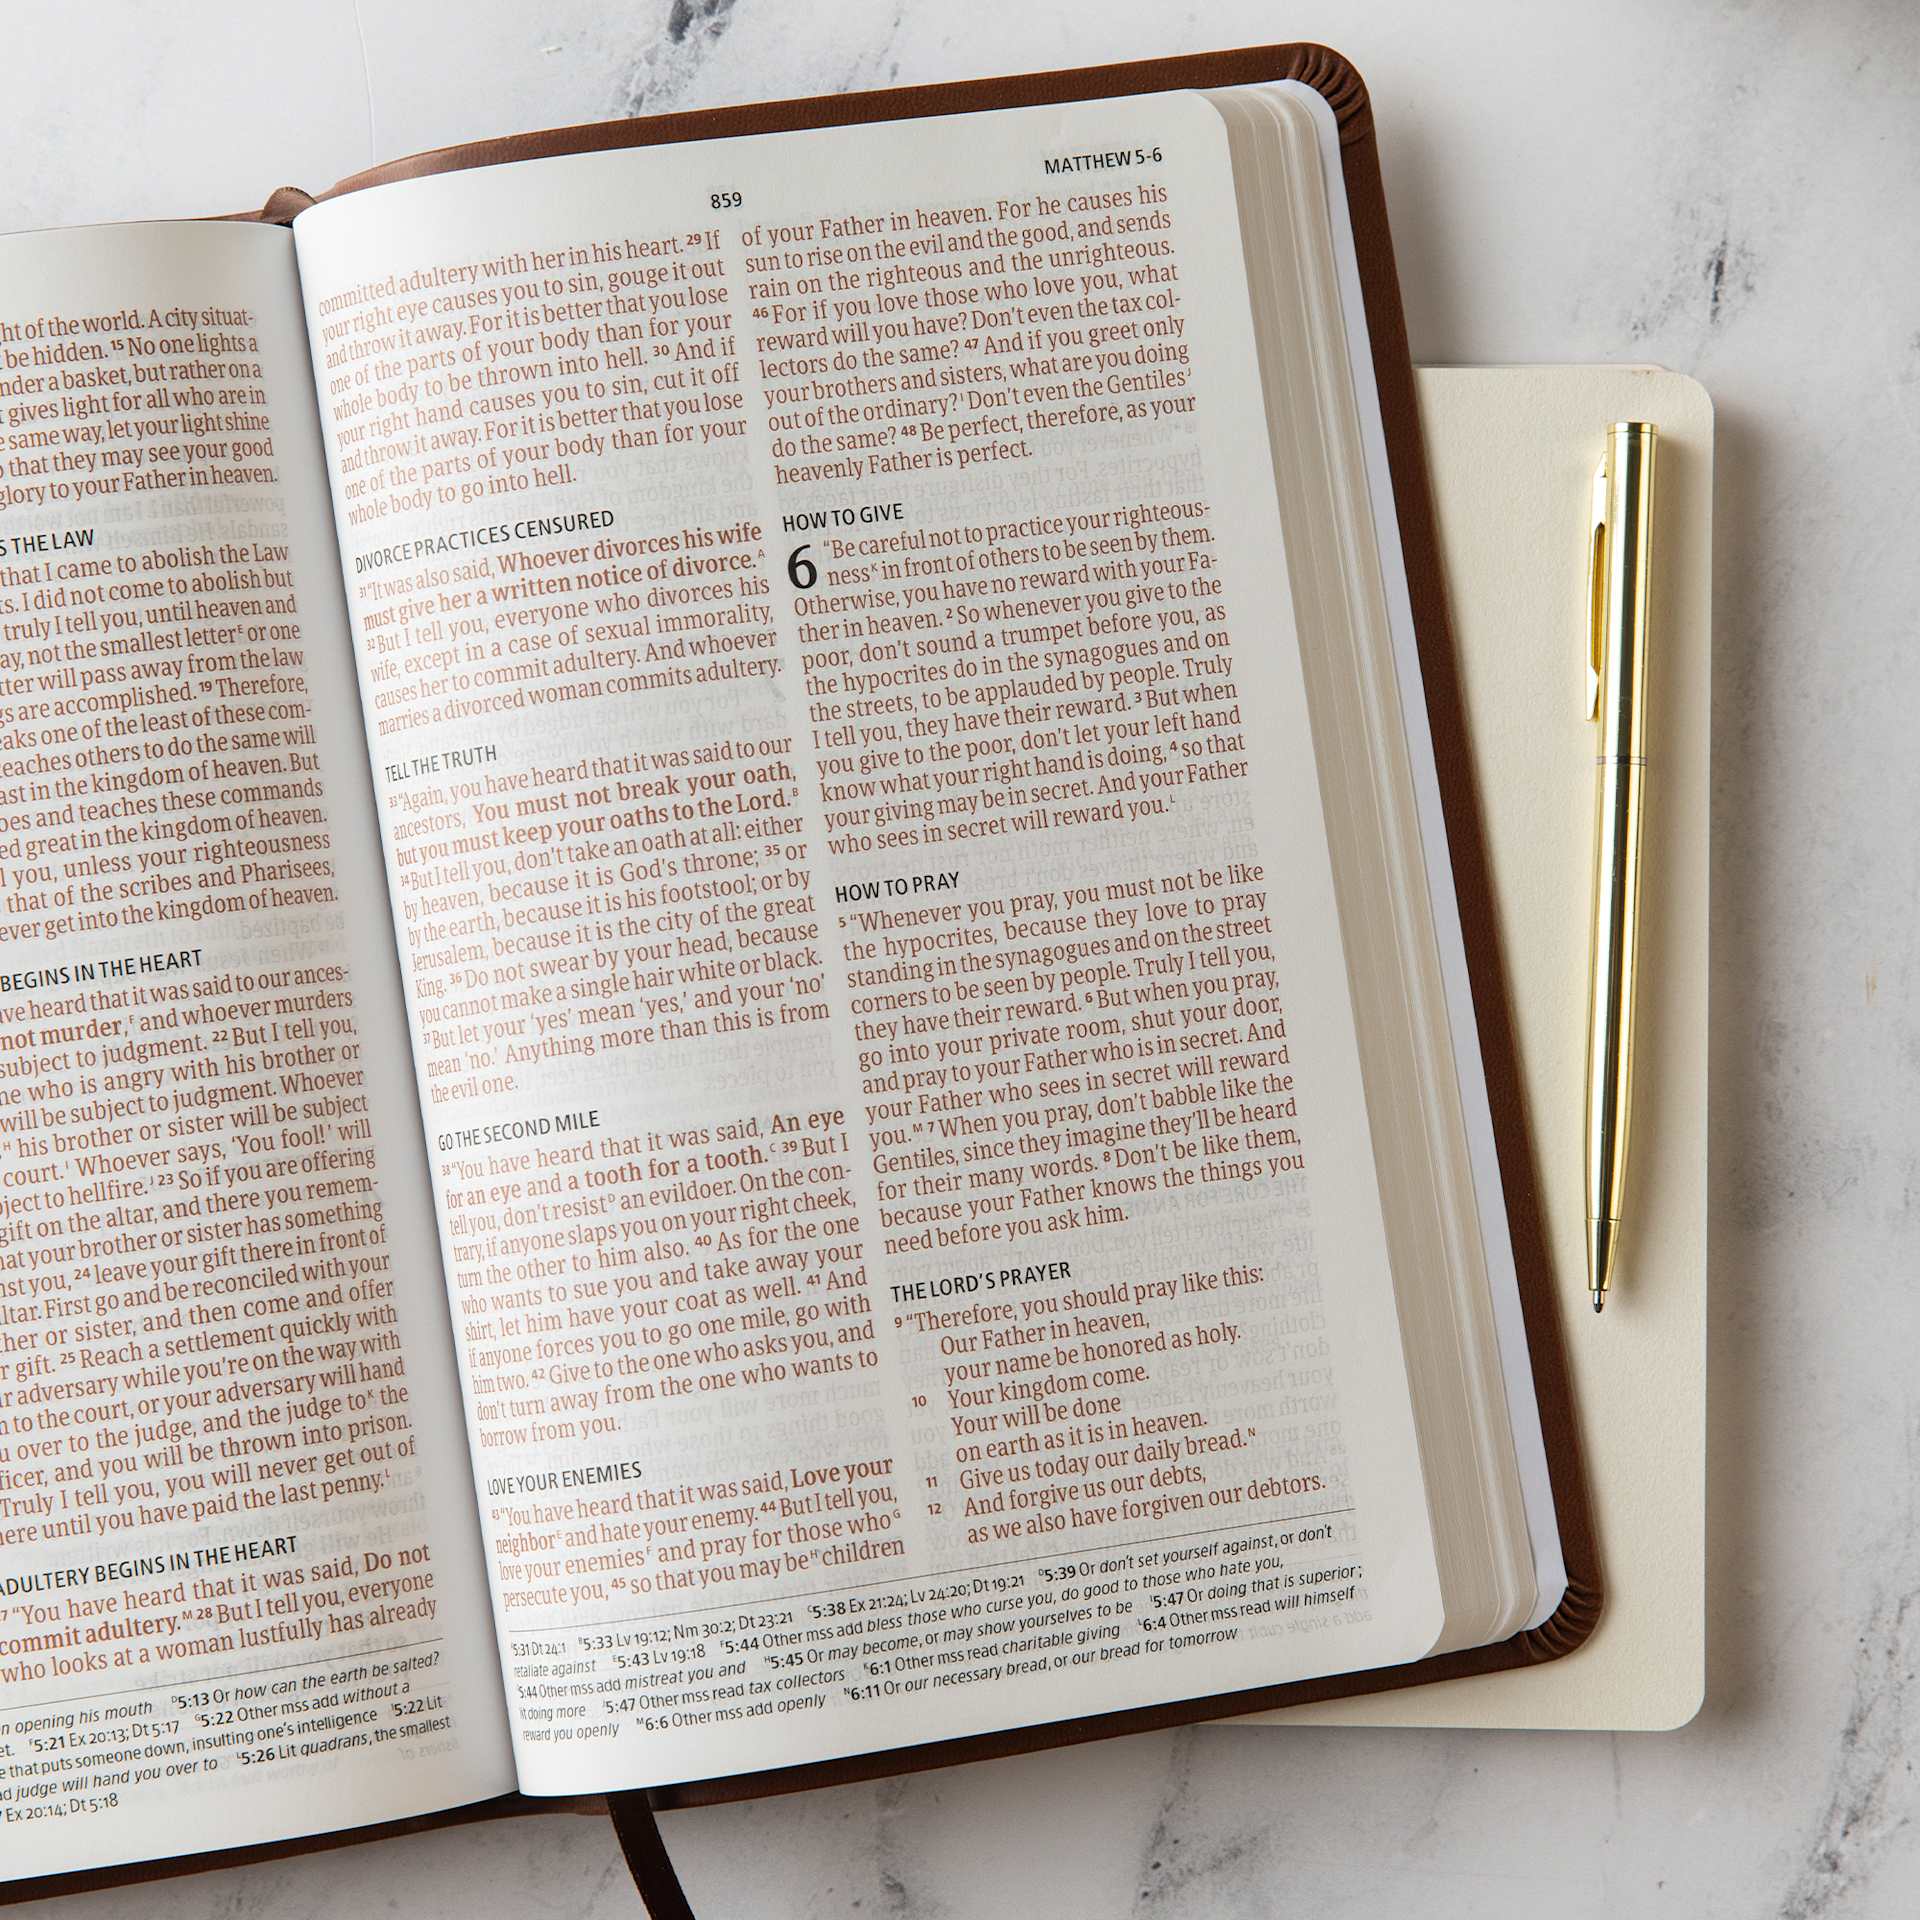 ht of the world. A city situat-
be hidden. 15 No one lights a
nder a basket, but rather on a
gives light for all who are in
e same way, let your light shine
that they may see your good
glory to your Father in heaven.
S THE LAW
that I came to abolish the Law
ts. I did not come to abolish but
truly I tell you, until heaven and
ay, not the smallest letterE or one
tter will pass away from the law
gs are accomplished. 19 Therefore,
eaks one of the least of these com-
teaches others to do the same will
ast in the kingdom of heaven. But
oes and teaches these commands
ed great in the kingdom of heaven.
l you, unless your righteousness
that of the scribes and Pharisees,
ever get into the kingdom of heaven.
BEGINS IN THE HEART
ave heard that it was said to our ances-
not murder,F and whoever murders
subject to judgment. 22 But I tell you,
ne who is angry with his brother or
will be subject to judgment. Whoever
,H his brother or sister will be subject
court.I Whoever says, ‘You fool!’ will
bject to hellfire.J 23 So if you are offering
gift on the altar, and there you remem-
hat your brother or sister has something
nst you, 24 leave your gift there in front of
altar. First go and be reconciled with your
ther or sister, and then come and offer
r gift. 25 Reach a settlement quickly with
ur adversary while you’re on the way with
n to the court, or your adversary will hand
u over to the judge, and the judge toK the
ficer, and you will be thrown into prison.
Truly I tell you, you will never get out of
here until you have paid the last penny.L
ADULTERY BEGINS IN THE HEART
27 “You have heard that it was said, Do not
commit adultery.M 28 But I tell you, everyone
who looks at a woman lustfully has already
n opening his mouth D5:13 Or how can the earth be salted?
et. F5:21 Ex 20:13; Dt 5:17 G5:22 Other mss add without a
e that puts someone down, insulting one’s intelligence I5:22 Lit
d judge will hand you over to L5:26 Lit quadrans, the smallest
Ex 20:14; Dt 5:18
859
MATTHEW 5-6
committed adultery with her in his heart. 29 If
your right eye causes you to sin, gouge it out
and throw it away. For it is better that you lose
one of the parts of your body than for your
whole body to be thrown into hell. 30 And if
your right hand causes you to sin, cut it off
and throw it away. For it is better that you lose
one of the parts of your body than for your
whole body to go into hell.
DIVORCE PRACTICES CENSURED
31 “It was also said, Whoever divorces his wife
must give her a written notice of divorce.A
32 But I tell you, everyone who divorces his
wife, except in a case of sexual immorality,
causes her to commit adultery. And whoever
marries a divorced woman commits adultery.
TELL THE TRUTH
33 “Again, you have heard that it was said to our
ancestors, You must not break your oath,
but you must keep your oaths to the Lord.B
34 But I tell you, don’t take an oath at all: either
by heaven, because it is God’s throne; 35 or
by the earth, because it is his footstool; or by
Jerusalem, because it is the city of the great
King. 36 Do not swear by your head, because
you cannot make a single hair white or black.
37 But let your ‘yes’ mean ‘yes,’ and your ‘no’
mean ‘no.’ Anything more than this is from
the evil one.
GO THE SECOND MILE
38 “You have heard that it was said, An eye
for an eye and a tooth for a tooth.C 39 But I
tell you, don’t resistD an evildoer. On the con-
trary, if anyone slaps you on your right cheek,
turn the other to him also. 40 As for the one
who wants to sue you and take away your
shirt, let him have your coat as well. 41 And
if anyone forces you to go one mile, go with
him two. 42 Give to the one who asks you, and
don’t turn away from the one who wants to
borrow from you.
LOVE YOUR ENEMIES
43 “You have heard that it was said, Love your
neighborE and hate your enemy. 44 But I tell you,
love your enemiesF and pray for those whoG
persecute you, 45 so that you may beH children
of your Father in heaven. For he causes his
sun to rise on the evil and the good, and sends
rain on the righteous and the unrighteous.
46 For if you love those who love you, what
reward will you have? Don’t even the tax col-
lectors do the same? 47 And if you greet only
your brothers and sisters, what are you doing
out of the ordinary?I Don’t even the GentilesJ
do the same? 48 Be perfect, therefore, as your
heavenly Father is perfect.
HOW TO GIVE
6 “Be careful not to practice your righteous-
nessK in front of others to be seen by them.
Otherwise, you have no reward with your Fa-
ther in heaven. 2 So whenever you give to the
poor, don’t sound a trumpet before you, as
the hypocrites do in the synagogues and on
the streets, to be applauded by people. Truly
I tell you, they have their reward. 3 But when
you give to the poor, don’t let your left hand
know what your right hand is doing, 4 so that
your giving may be in secret. And your Father
who sees in secret will reward you.L
HOW TO PRAY
5 “Whenever you pray, you must not be like
the hypocrites, because they love to pray
standing in the synagogues and on the street
corners to be seen by people. Truly I tell you,
they have their reward. 6 But when you pray,
go into your private room, shut your door,
and pray to your Father who is in secret. And
your Father who sees in secret will reward
you.M 7 When you pray, don’t babble like the
Gentiles, since they imagine they’ll be heard
for their many words. 8 Don’t be like them,
because your Father knows the things you
need before you ask him.
THE LORD’S PRAYER
9 “Therefore, you should pray like this:
Our Father in heaven,
your name be honored as holy.
10 Your kingdom come.
Your will be done
on earth as it is in heaven.
11 Give us today our daily bread.N
12 And forgive us our debts,
as we also have forgiven our debtors.
A5:31 Dt 24:1 B5:33 Lv 19:12; Nm 30:2; Dt 23:21 C5:38 Ex 21:24; Lv 24:20; Dt 19:21 D5:39 Or don’t set yourself against, or don’t
retaliate against E5:43 Lv 19:18 F5:44 Other mss add bless those who curse you, do good to those who hate you,
G5:44 Other mss add mistreat you and H5:45 Or may become, or may show yourselves to be I5:47 Or doing that is superior;
lit doing more J5:47 Other mss read tax collectors K6:1 Other mss read charitable giving L6:4 Other mss read will himself
reward you openly M6:6 Other mss add openly N6:11 Or our necessary bread, or our bread for tomorrow